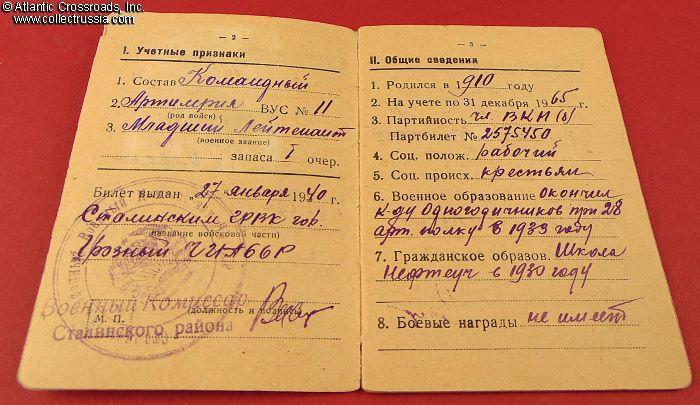 © Atlantic Crossroads, Inc.
www.collectrussia.com
— 2 —
I. Учетные признаки
1. Состав Командный
2. Артилерия ВУС № 11
(род войск)
3. Младший Лейтенант
(военное звание)
запаса I очер.
Билет выдан „27" января 1940 г.
Сталинским ГРВК гор
(название войсковой части)
Грозный ЧИАССР
Военный Комиссар
М. П. (должность и подпись)
Сталинского района
— 3 —
II. Общие сведения
1. Родился в 1910 году
2. На учете по 31 декабря 1965 г.
3. Партийность чл. ВКП(б)
Партбилет № 2575450
4. Соц. полож. рабочий
5. Соц. происх. крестьян
6. Военное образование Окончил
к-ду Одногодичников при 28
арт. полку в 1933 году
7. Гражданское образов. Школа
Нефтеуч в 1930 году
8. Боевые награды не имеет